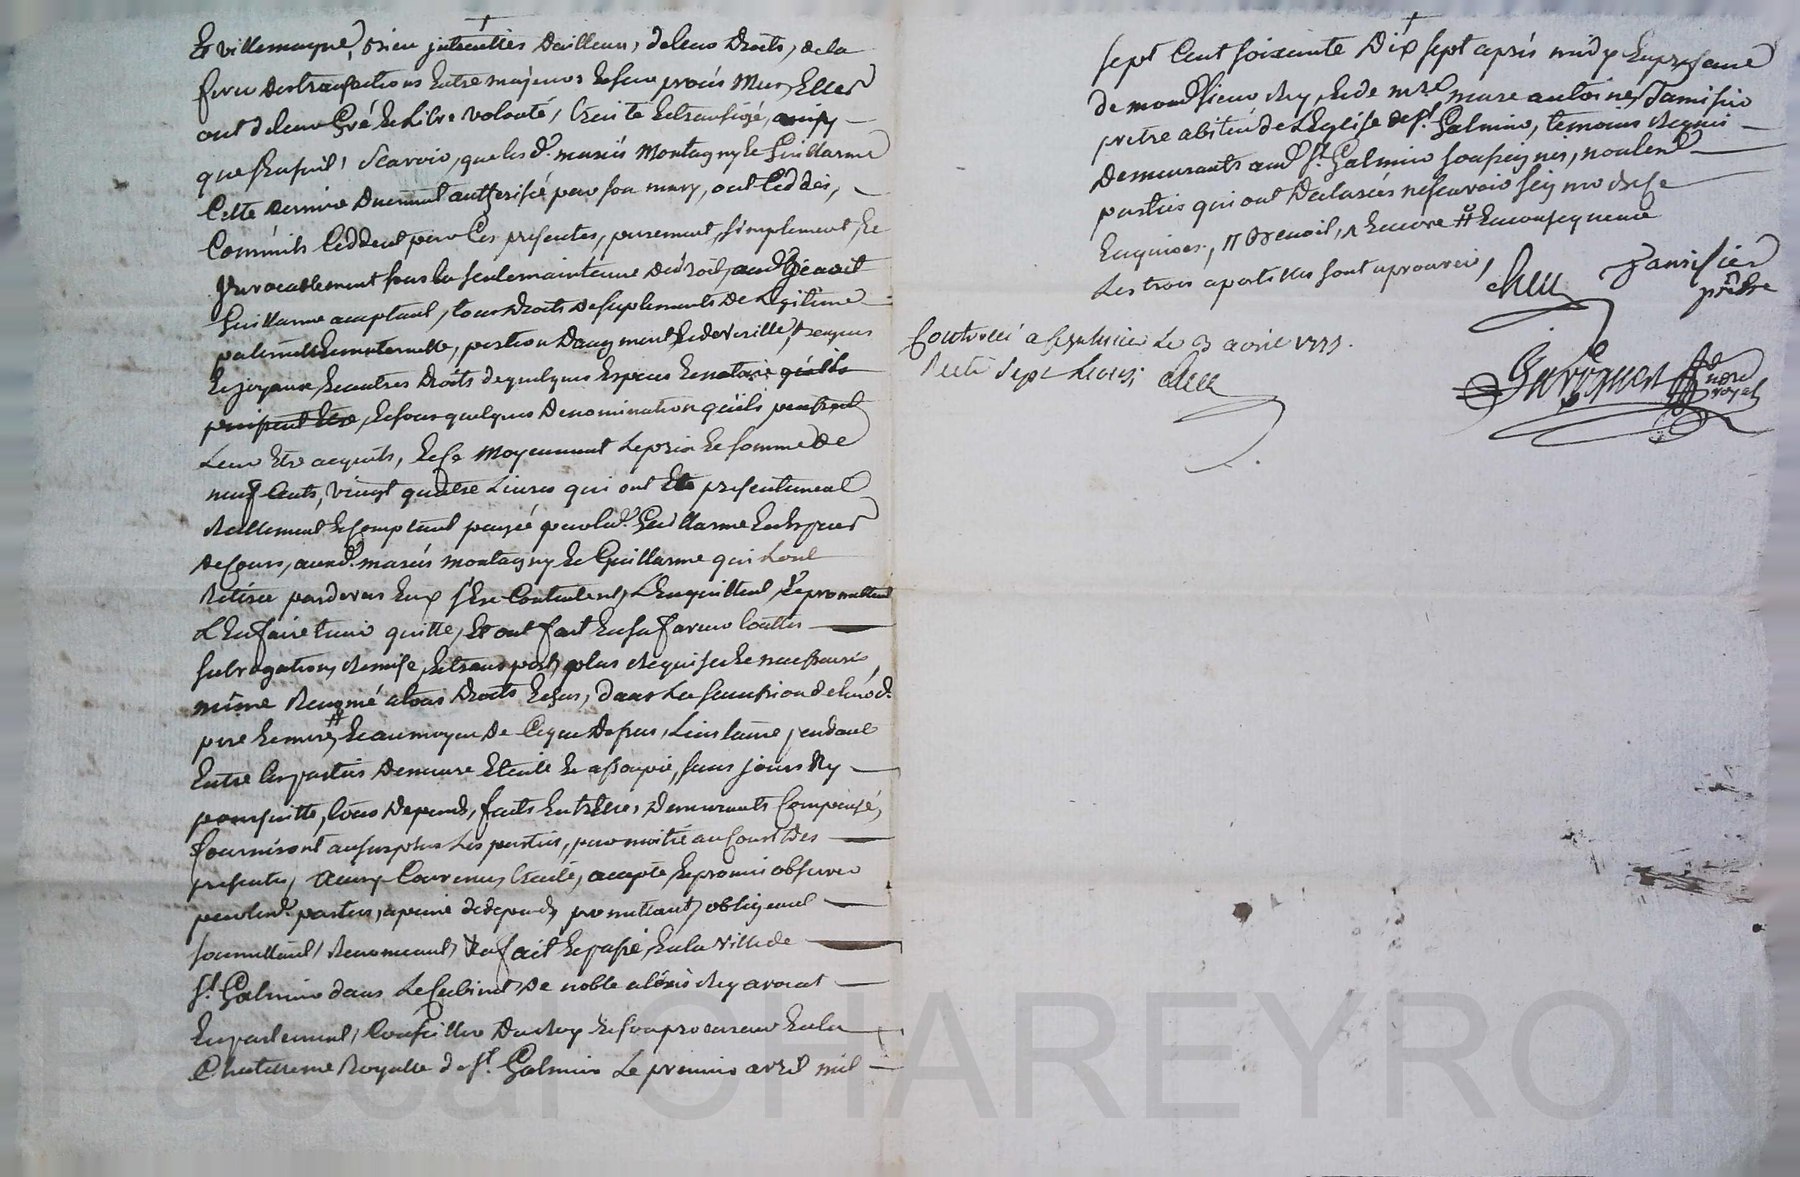 Et villemagne, bien intentiés d'ailleurs, de leurs droits, de la
force des transactions entre majeurs et sur procès mus, Elles
ont de leur Gré et Libre volonté, traité et transigé, ainsy
que s'ensuit, Scavoir, que les d. mariés Montagny et Guillarme
Cette dernière duement autherisée par son mary, ont Ceddés,
Comme ils Ceddent par Ces presentes, purement, simplement, Et
Irrevocablement sous la seule maintenue de droit, aud. Benoit
Guillarme acceptant, tous droits de suplements de Légitime
paternelle et maternelle, portion d'augment
Et joyaux, et autres droits de quelques Espèces et nature qu'ils
puissent Etre, et sous quelques denomination qu'ils peuvent
Leur Etre acquits, Et Ce Moyennant Le prix et somme de
neuf Cents, vingt quatre Livres qui ont Eté presentement
Réellement et Comptant payée par led. Guillarme En Espèces
de Cours, auxd. mariés montagny et Guillarme qui L'ont
Retirée pardevers Eux s'En Contentent, L'En quittent, Et promettent
L'En faire tenir quitte, Et ont fait En sa faveur touttes
subrogations, demise, et transport, plus requises et necessaires,
même Renoncé à tous droits
père et mère, # Et au moyen de Ce que dessus, L'instance pendante
Entre Les parties demeure Eteinte et assoupie, sans jours Ny
poursuitte, tous depends, faits Entr'Elles, demeurants Compensés,
fourniront au surplus Les parties, par moitié au Cout des
presentes, Ainsy Convenus, traité, accepté, et promis observer
par lesd. parties, à peine de depends, promettant, obligeant
soumettant, Renonceant, &a fait et passé, En la ville de
St. Galmier dans Le Cabinet de noble alexis Rey avocat
En parlement, Conseiller du Roy et son procureur En la
Chatellenie Royalle de St. Galmier Le premier avril mil
sept Cent soixante Dix sept après midy En presence
de mond. sieur Rey, et de mre marc antoine Jamisier
pretre abitué de L'Eglise de St. Galmier, temoins Requis
demeurants aud. St. Galmier soussignés, non lesd.
parties qui ont declarés ne scavoir signer de ce
Enquises, π Benoit, Λ Encore # En consequence
Les trois apostilles sont aprouvées,
Jamisier
prêtre
Controllé a St galmier Le 3 avril 1777.
Reçu sept Livres
nore
royal
Pascal CHAREYRON